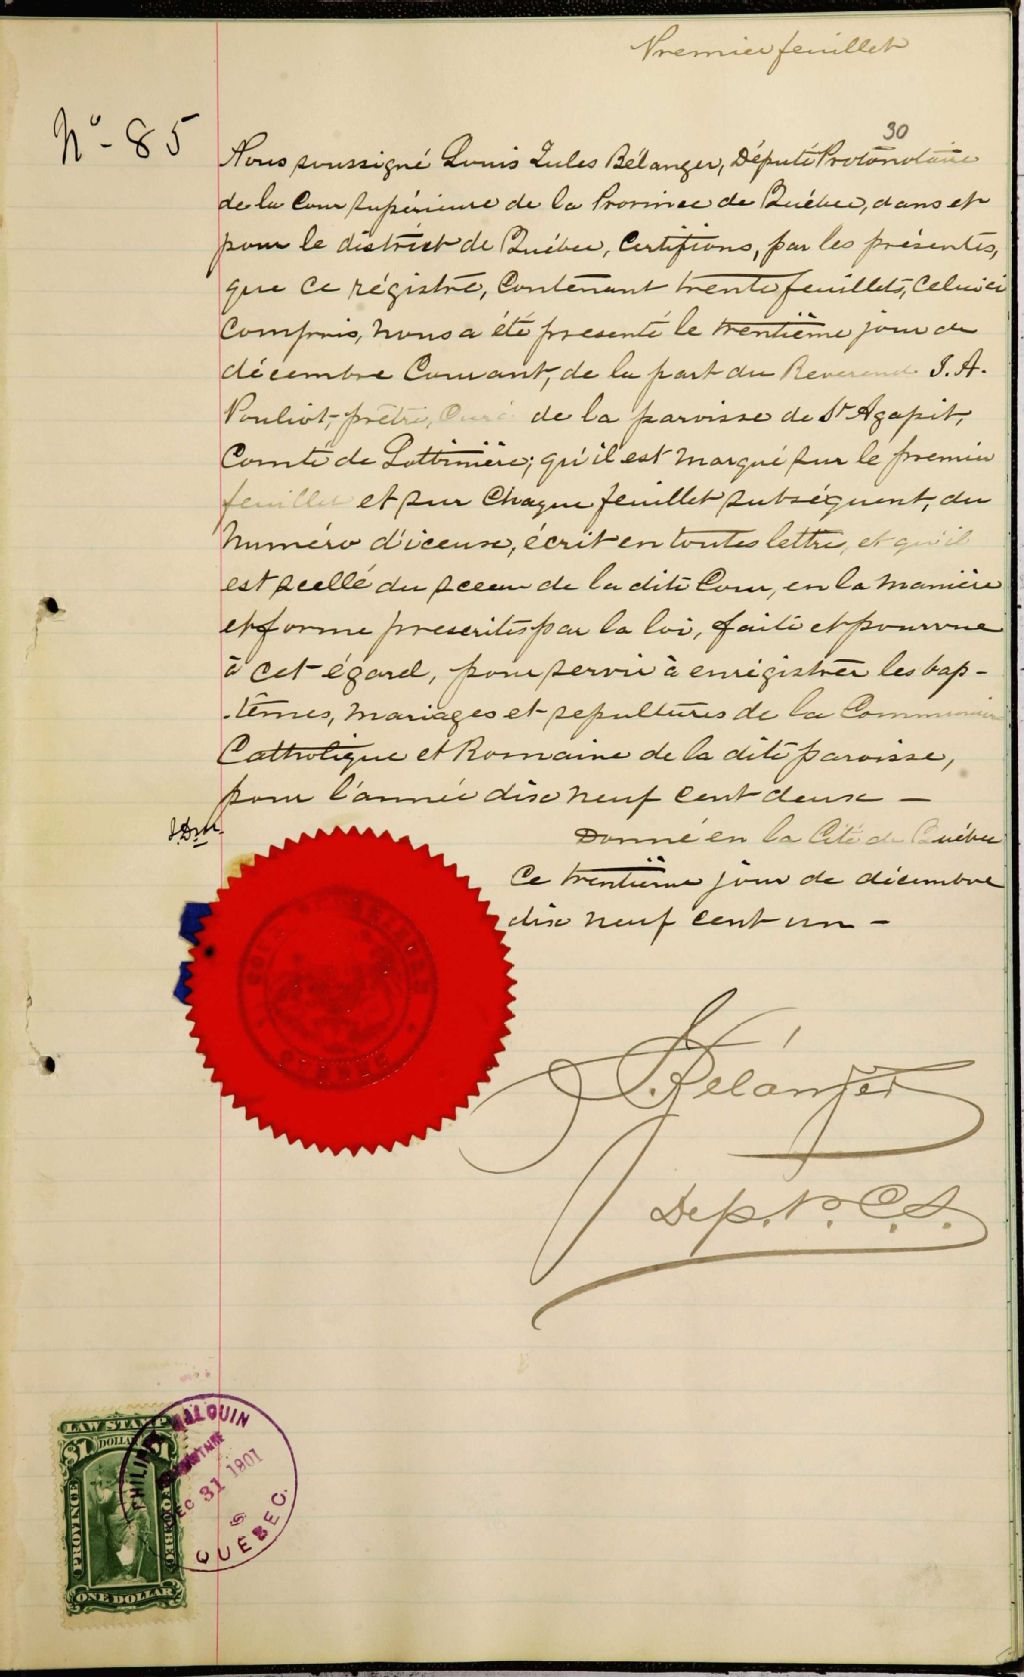 Premier feuillet
30
No - 85
Nous soussigné Louis Jules Bélanger, Député Protonotaire
de la Cour supérieure de la Province de Québec, dans et
pour le district de Québec, Certifions, par les présentes,
que ce régistre, Contenant trente feuillets, celui ci
Compris, nous a été presenté le trentième jour de
décembre Courant, de la part du Reverend J. A.
Pouliot, prêtre, Curé de la paroisse de St Agapit,
Comté de Lotbinière; qu'il est marqué sur le premier
feuillet et sur Chaque feuillet subséquent, du
Numéro d'iceux, écrit en toutes lettre, et qu'il
est scellé du sceau de la dite Cour, en la manière
et forme prescrites par la loi, faite et pourvue
à cet égard, pour servir à enrégistrer les bap-
-têmes, mariages et sepultures de la Communion
Catholique et Romaine de la dite paroisse,
pour l'année dix neuf cent deux —
Donné en la Cité de Québec
Ce trentième jour de décembre
dix neuf cent un —
COUR SUPERIEURE
QUEBEC
L. J. Bélanger
Dep. P. C. S.
LAW STAMP
$1 DOLLAR $1
PROVINCE OF QUEBEC
ONE DOLLAR
PHILIPPE MALOUIN
DEC 31 1901
QUÉBEC